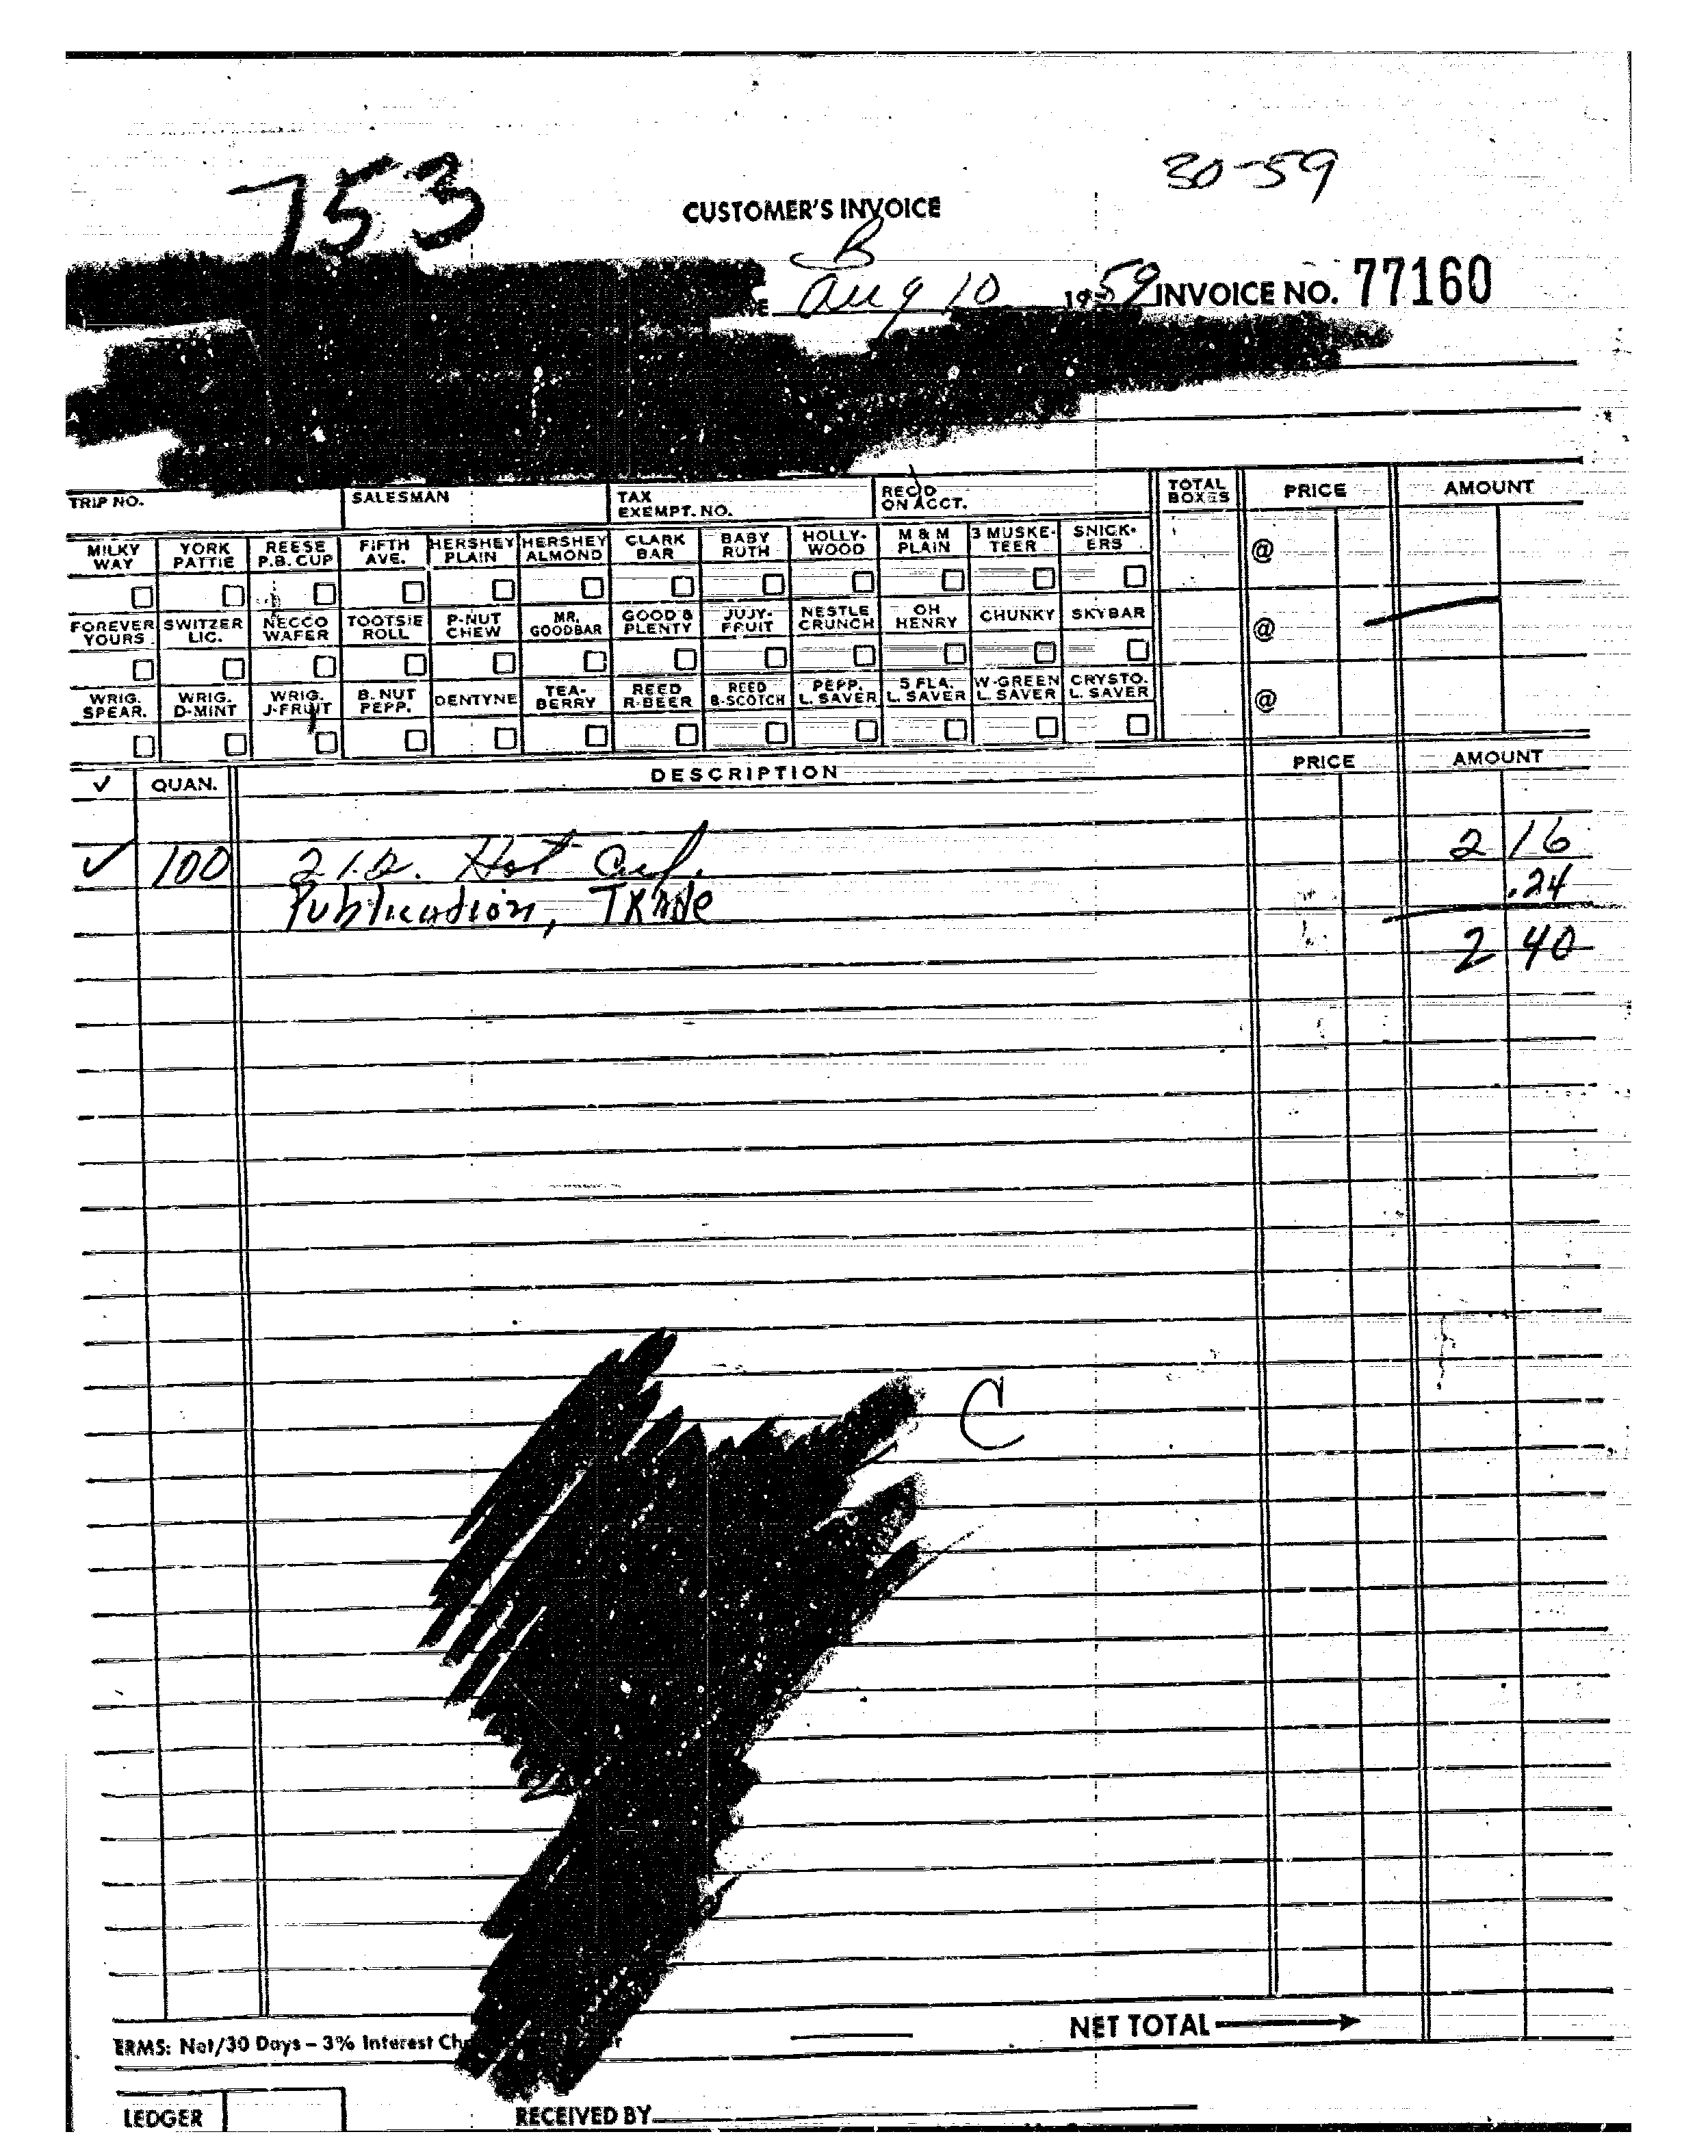 753
30-59
CUSTOMER'S INVOICE
B
Aug 10 1959 INVOICE NO. 77160
TRIP NO. SALESMAN TAX EXEMPT. NO. REC'D ON ACCT. TOTAL BOXES PRICE AMOUNT
MILKY WAY YORK PATTIE REESE P.B. CUP FIFTH AVE. HERSHEY PLAIN HERSHEY ALMOND CLARK BAR BABY RUTH HOLLY-WOOD M & M PLAIN 3 MUSKE-TEER SNICK-ERS @
FOREVER YOURS SWITZER LIC. NECCO WAFER TOOTSIE ROLL P-NUT CHEW MR. GOODBAR GOOD & PLENTY JUJY-FRUIT NESTLE CRUNCH OH HENRY CHUNKY SKYBAR @
WRIG. SPEAR. WRIG. D-MINT WRIG. J-FRUIT B. NUT PEPP. DENTYNE TEA-BERRY REED R-BEER REED B-SCOTCH PEPP. L. SAVER 5 FLA. L. SAVER W-GREEN L. SAVER CRYSTO. L. SAVER @
✓ QUAN. DESCRIPTION PRICE AMOUNT
✓ 100 Hot Cup. 2 16
Publication, .24
2 40
C
ERMS: Net/30 Days – 3% Interest
NET TOTAL
LEDGER RECEIVED BY